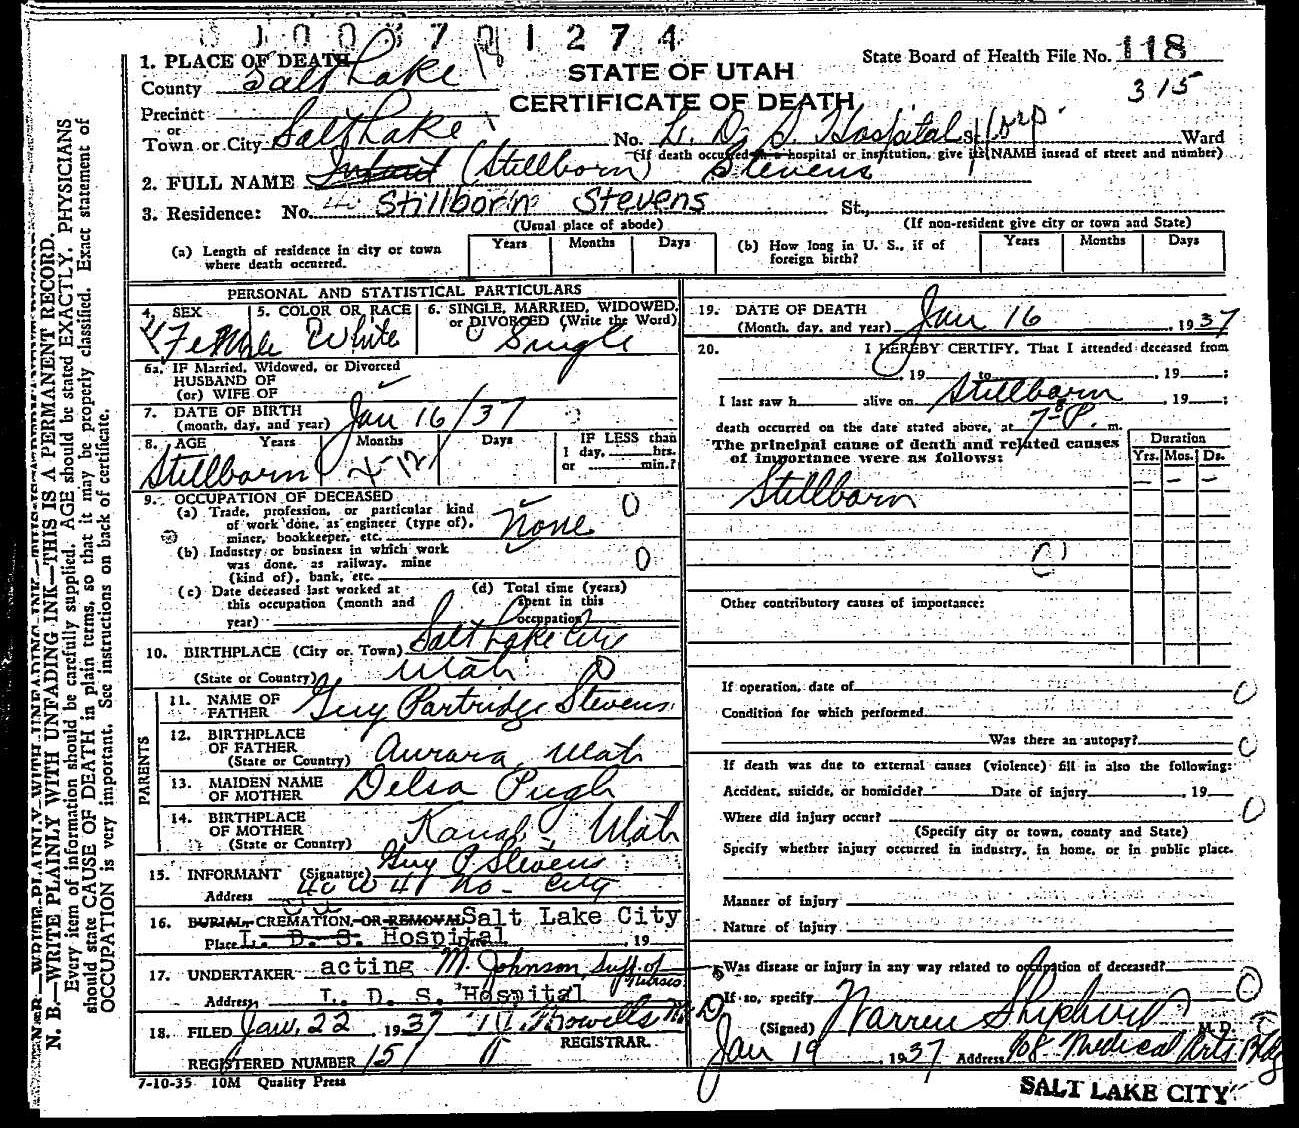 1 0 0 3 7 0 1 2 7 4
1. PLACE OF DEATH
County Salt Lake
STATE OF UTAH
CERTIFICATE OF DEATH
State Board of Health File No. 118
315
Precinct
or
Town or City Salt Lake No. L. D. S. Hospital St. Ward
(If death occurred in a hospital or institution, give its NAME insead of street and number)
2. FULL NAME Infant (Stillborn) Stevens
3. Residence: No. Stillborn Stevens St.,
(Usual place of abode) (If non-resident give city or town and State)
(a) Length of residence in city or town where death occurred. Years Months Days
(b) How long in U. S., if of foreign birth? Years Months Days
PERSONAL AND STATISTICAL PARTICULARS
4. SEX Female
5. COLOR OR RACE White
6. SINGLE, MARRIED, WIDOWED, or DIVORCED (Write the Word) Single
6a. IF Married, Widowed, or Divorced
HUSBAND OF
(or) WIFE OF
7. DATE OF BIRTH
(month, day, and year) Jan 16/37
8. AGE Years Months Days IF LESS than
1 day, hrs.
or min.?
Stillborn
9. OCCUPATION OF DECEASED
(a) Trade, profession, or particular kind
of work done, as engineer (type of),
miner, bookkeeper, etc. None
(b) Industry or business in which work
was done, as railway, mine
(kind of), bank, etc.
(c) Date deceased last worked at
this occupation (month and
year)
(d) Total time (years)
spent in this
occupation
10. BIRTHPLACE (City or Town) Salt Lake City
(State or Country) Utah
PARENTS
11. NAME OF FATHER Guy Partridge Stevens
12. BIRTHPLACE OF FATHER
(State or Country) Aurora, Utah
13. MAIDEN NAME OF MOTHER Delsa Pugh
14. BIRTHPLACE OF MOTHER
(State or Country) Kanab, Utah
15. INFORMANT (Signature) Guy P Stevens
Address City
16. BURIAL, CREMATION, OR REMOVAL Salt Lake City
Place L. D. S. Hospital Date , 19
17. UNDERTAKER acting M. Johnson, Supt. of Nurses
Address L. D. S. Hospital
18. FILED Jan. 22 , 1937
REGISTRAR.
REGISTERED NUMBER 151
7-10-35 10M Quality Press
19. DATE OF DEATH
(Month, day, and year) Jan 16 , 1937
20. I HEREBY CERTIFY, That I attended deceased from
, 19 to , 19 :
I last saw h alive on Stillborn , 19 :
death occurred on the date stated above, at 7-8 P. m.
The principal cause of death and related causes
of importance were as follows:
Duration
Yrs. Mos. Ds.
Stillborn - - -
Other contributory causes of importance:
If operation, date of
Condition for which performed
Was there an autopsy?
If death was due to external causes (violence) fill in also the following:
Accident, suicide, or homicide? Date of injury , 19
Where did injury occur?
(Specify city or town, county and State)
Specify whether injury occurred in industry, in home, or in public place.
Manner of injury
Nature of injury
Was disease or injury in any way related to occupation of deceased?
If so, specify
(Signed) Warren Shepherd M. D.
Jan 19 , 1937 Address 908 Medical Arts Bldg
SALT LAKE CITY
N. B.—WRITE PLAINLY WITH UNFADING INK—THIS IS A PERMANENT RECORD.
Every item of information should be carefully supplied. AGE should be stated EXACTLY. PHYSICIANS
should state CAUSE OF DEATH in plain terms, so that it may be properly classified. Exact statement of
OCCUPATION is very important. See instructions on back of certificate.